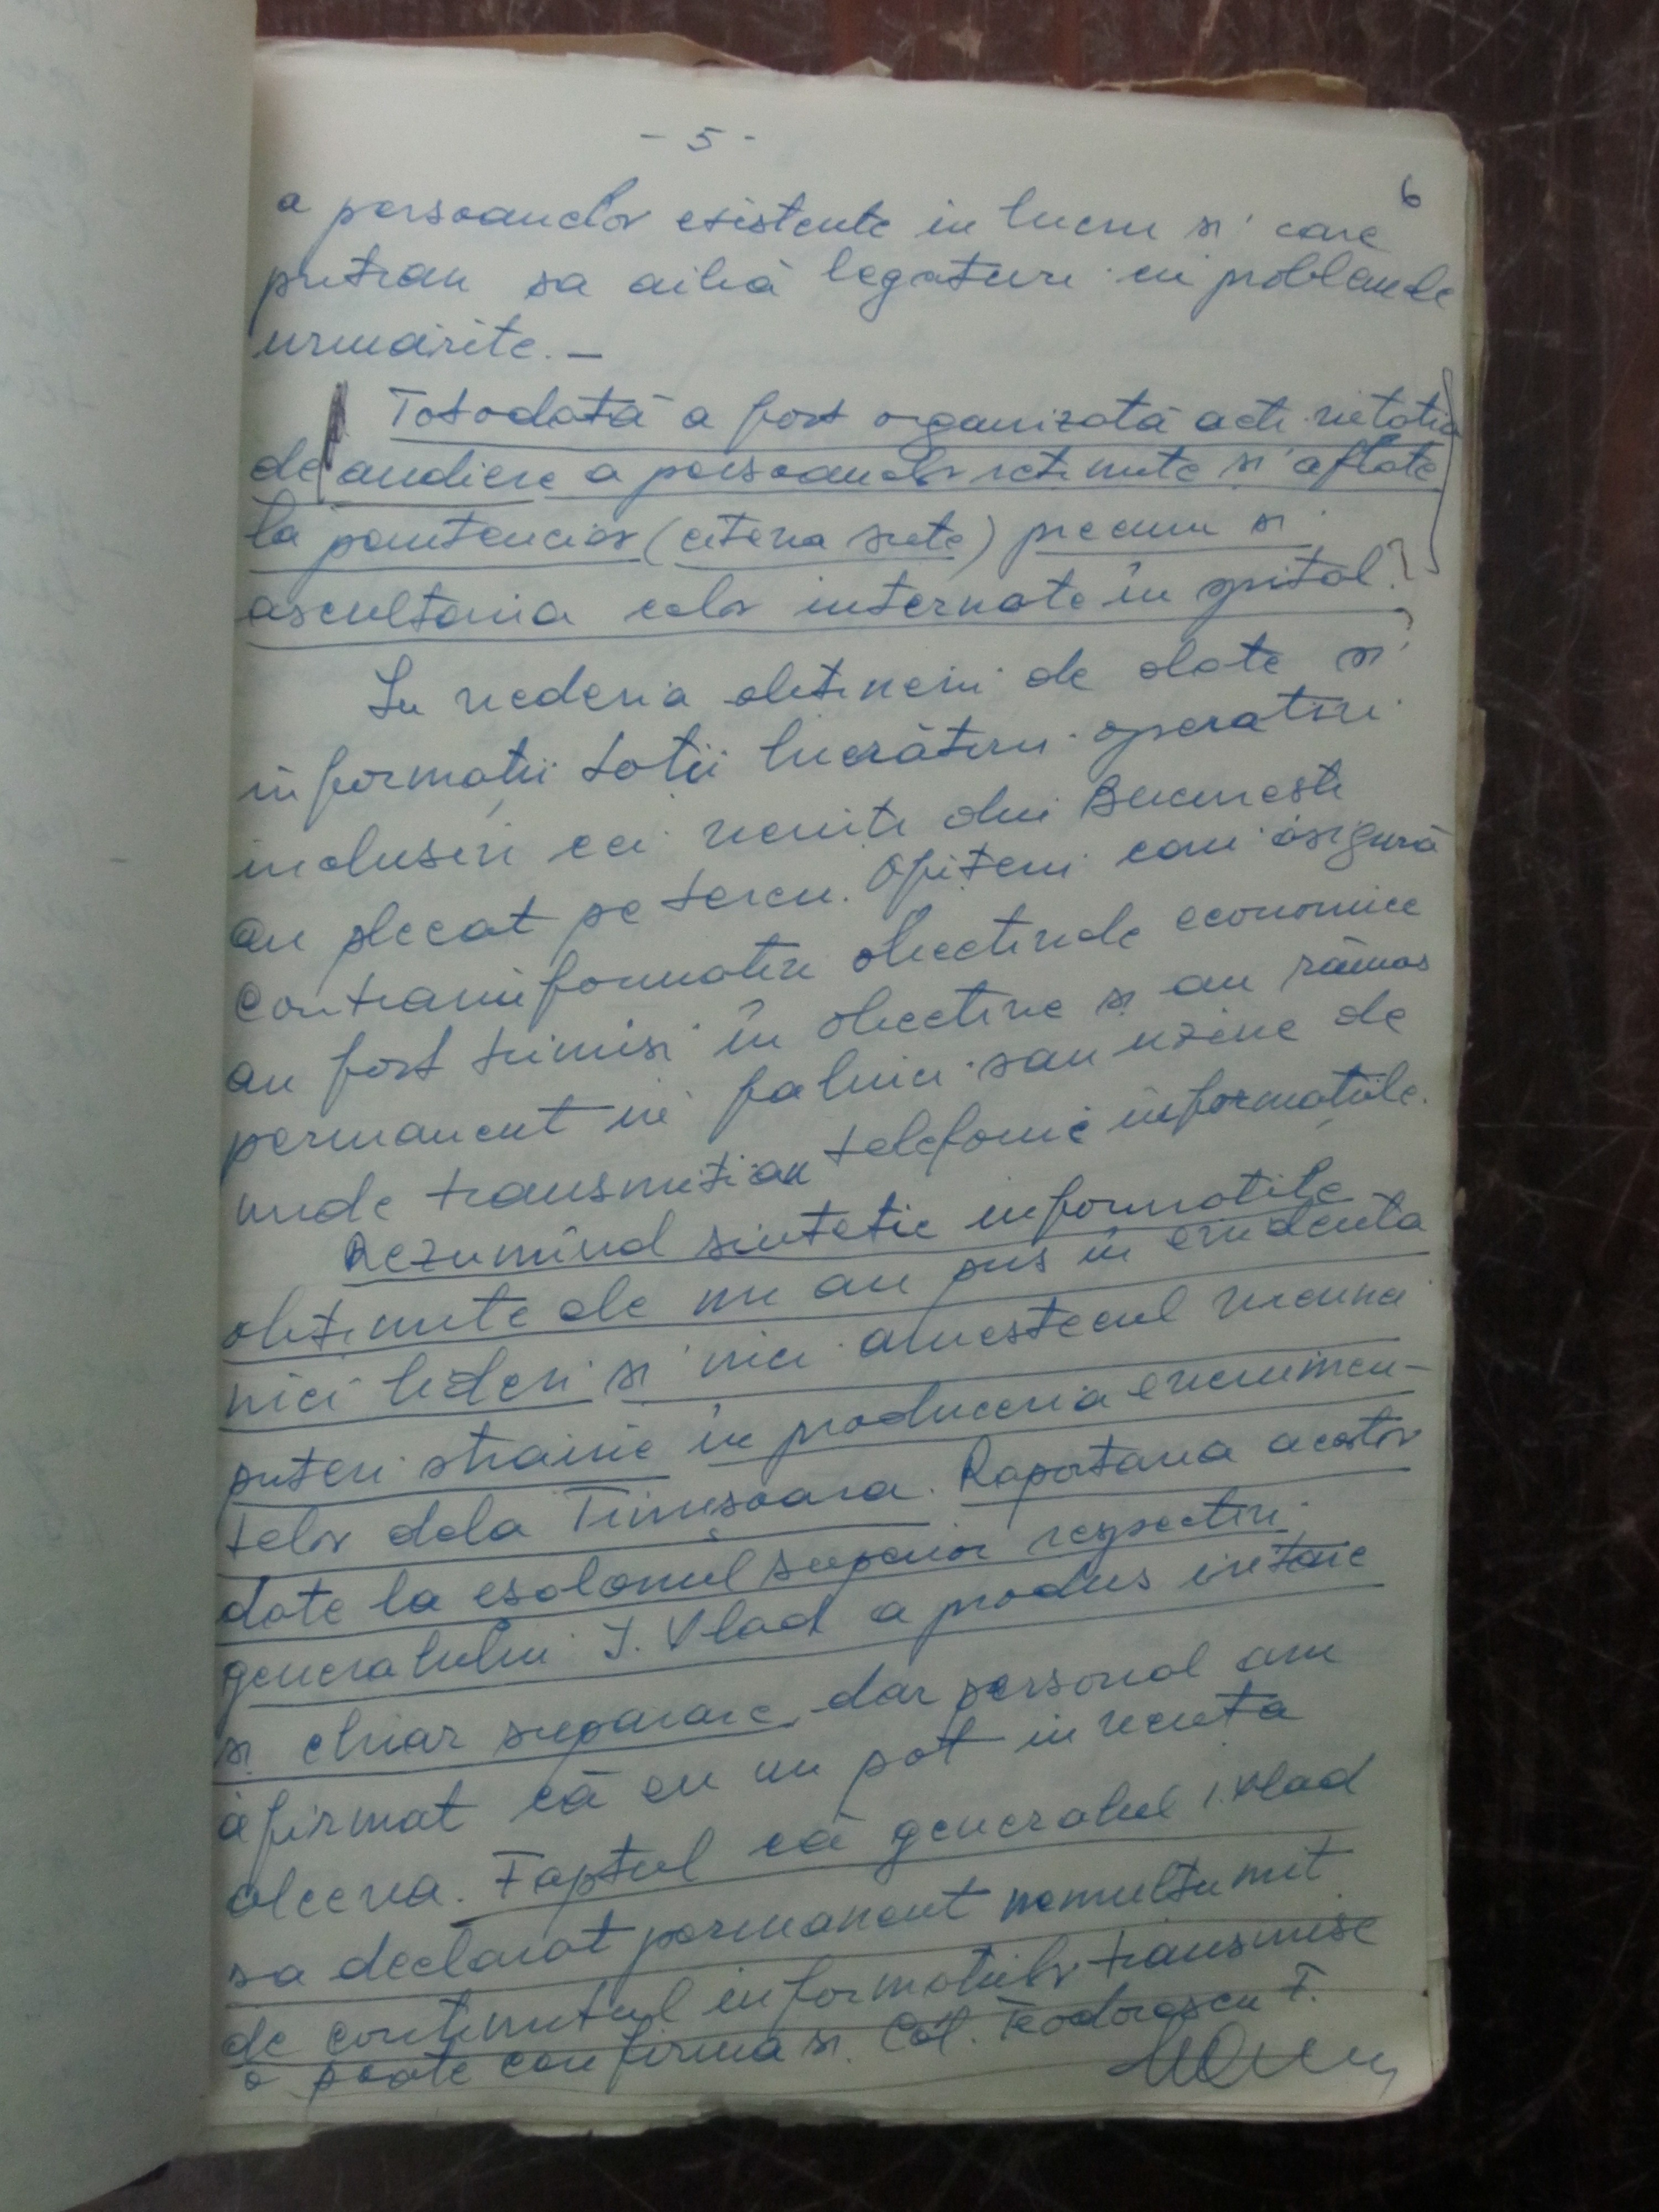 - 5 -
6
a persoanelor existente in lucru si care
putrau sa aibă legaturi cu problemele
urmărite. —
Totodată a fost organizată activitatia
de audiere a persoanelor retinute si aflate
la penitenciar (citeva sute) precum si
ascultaria celor internate în spital. ?
In vederia obtinerii de date si
informații toții lucrătorii operativi
inclusiv cei veniti din Bucuresti
au plecat pe teren. Ofițerii care asigură
contrainformativ obectivele economice
au fost trimisi în obective si au rămas
permanent in fabrici sau uzine de
unde transmitiau telefonic informațiile.
Rezumînd sintetic informatiile
obtinute ele nu au pus in evidenta
nici lideri si nici amestecul vreunei
puteri straine in produceria evenimen-
telor dela Timișoara. Raportaria acestor
date la esalonul superior respectiv
generalului I. Vlad a produs iritare
si chiar suparare dar personal am
afirmat că eu nu pot inventa
alceva. Faptul că generalul I. Vlad
sa declarat permanent nemultumit
de continutul informatiilor transmise
o poate confirma si Col. Teodorescu F.